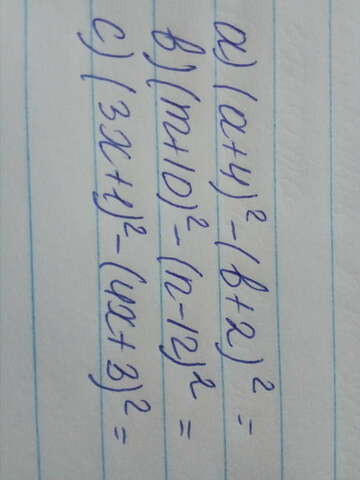 a) (a+4)² - (b+2)² =
b) (m+10)² - (n-12)² =
c) (3x+1)² - (4x+3)² =